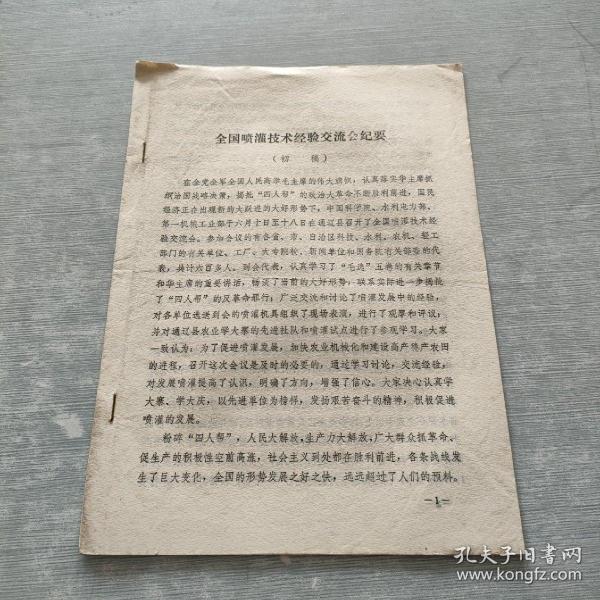 全国喷灌技术经验交流会纪要
（初 稿）
在全党全军全国人民高举毛主席的伟大旗帜，认真落实华主席抓
纲治国战略决策，揭批“四人帮”的政治大革命不断胜利前进，国民
经济正在出现新的大跃进的大好形势下，中国科学院、水利电力部、
第一机械工业部于六月十日至十八日在通辽县召开了全国喷灌技术经
验交流会。参加会议的有各省、市、自治区科技、水利、农机、轻工
部门的有关单位、工厂、大专院校、新闻单位和国务院有关部委的代
表，共计六百多人。到会代表，认真学习了“毛选”五卷的有关章节
和华主席的重要讲话，畅谈了当前的大好形势，联系实际进一步揭批
了“四人帮”的反革命罪行；广泛交流和讨论了喷灌发展中的经验，
对各单位选送到会的喷灌机具组织了现场表演，进行了观摩和评议；
并对通辽县农业学大寨的先进社队和喷灌试点进行了参观学习。大家
一致认为：为了促进喷灌发展，加快农业机械化和建设高产稳产农田
的进程，召开这次会议是及时的必要的，通过学习讨论，交流经验，
对发展喷灌提高了认识，明确了方向，增强了信心。大家决心认真学
大寨、学大庆，以先进单位为榜样，发扬艰苦奋斗的精神，积极促进
喷灌的发展。
粉碎“四人帮”，人民大解放，生产力大解放，广大群众抓革命、
促生产的积极性空前高涨，社会主义到处都在胜利前进，各条战线发
生了巨大变化，全国的形势发展之好之快，远远超过了人们的预料。
—1—
孔夫子旧书网
www.kongfz.com